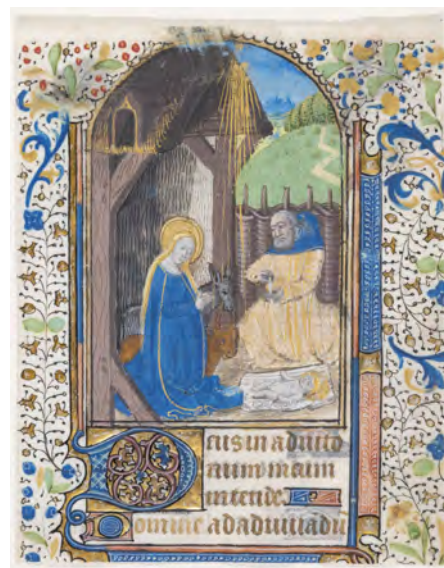 Deus in adiuto
rium meum
intende
Domine ad adiuuadū